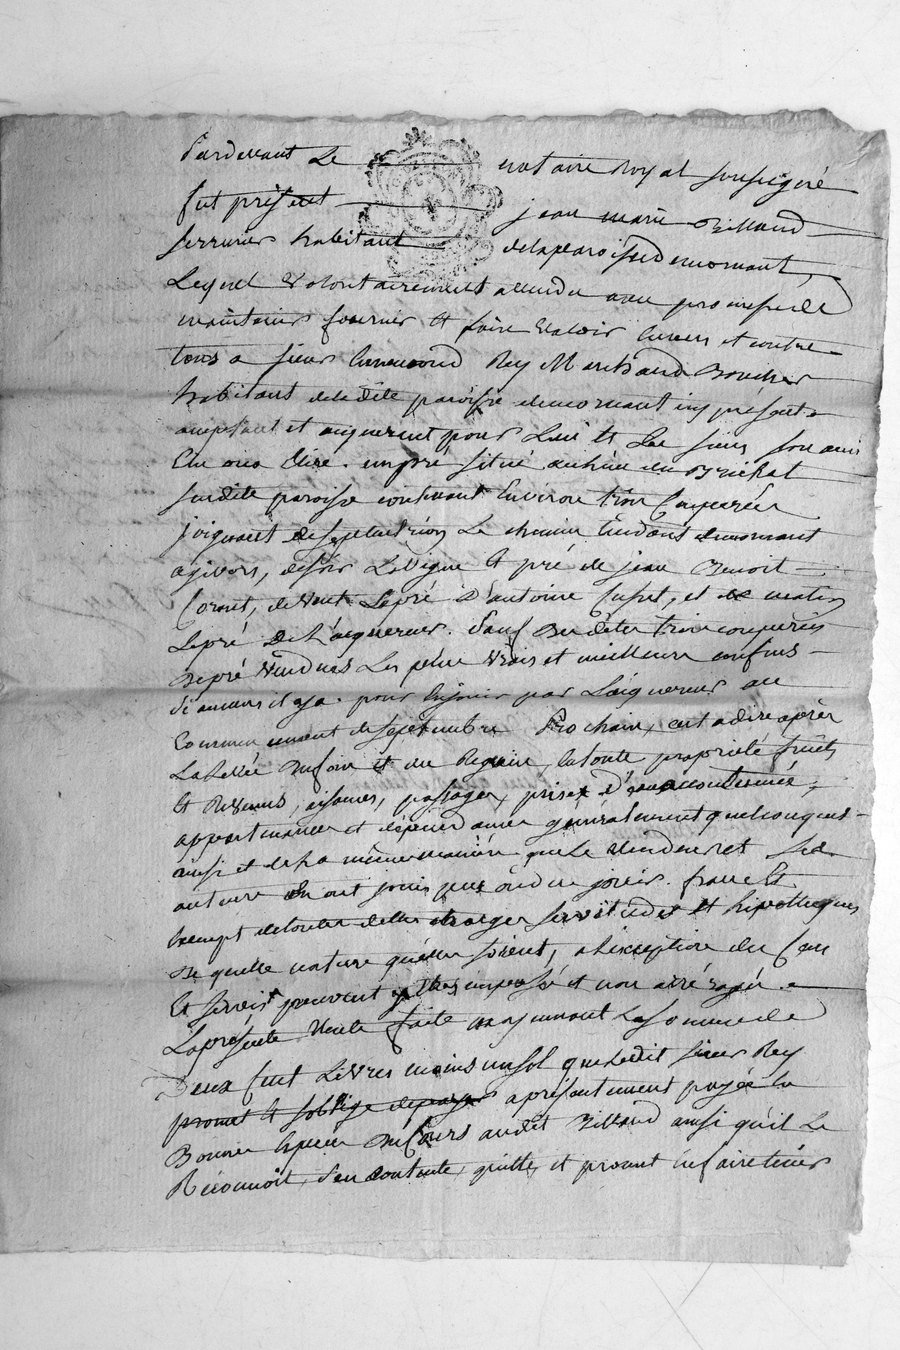 Pardevant Le notaire Royal soussigné
fut présent jean marie Billaud
serrurier habitant delaparoissedemornant,
Lequel volontairement a vendu avec promesse de
maintenir fournir et faire valoir envers et contre
tous a sieur Rey Marchand Boucher
habitant deladite paroisse demornant icy présent
acceptant et acquerant pour Lui et Les siens son ami
Elu ou a Elire. un pré situé au lieu du
susdite paroisse contenant Environ trois Couperées
joignant deseptentrion Le chemin tendant demornant
agivors, de soir La vigne et pré de jean Benoit
de vent Le pré d'antoine et de matin
Le pré De L'acquereur. sauf desdites trois couperées
de pré vendues Les plus vrais et meilleurs confins
si aucuns il y a. pour En jouir par L'acquereur au
Commencement deseptembre Prochain, c'est a dire après
La Levée du foin et du Regain, en toute propriété fruits
Et Revenus, aisances, passages, prises d'eau accoutumées,
appartenances et dépendances généralement quelconques
ainsi et de la même manière que Le vendeur et ses
auteurs En ont joui pu ou du jouir. franc Et
Exempt de toutes dettes charges servitudes Et hipotheques
De quelle nature qu'elles soient, a L'exception du Cens
Et servis pouvant y être imposé et non arréragés.
La présente Vente faite moyennant La somme de
Deux Cent Livres moins un sol que Ledit sieur Rey
promet Et s'oblige de payer a présentement payée en
Bonnes Espèces De Cours audit Billaud ainsi qu'il Le
Reconnoit, s'en contente, quitte, et promet En faire tenir